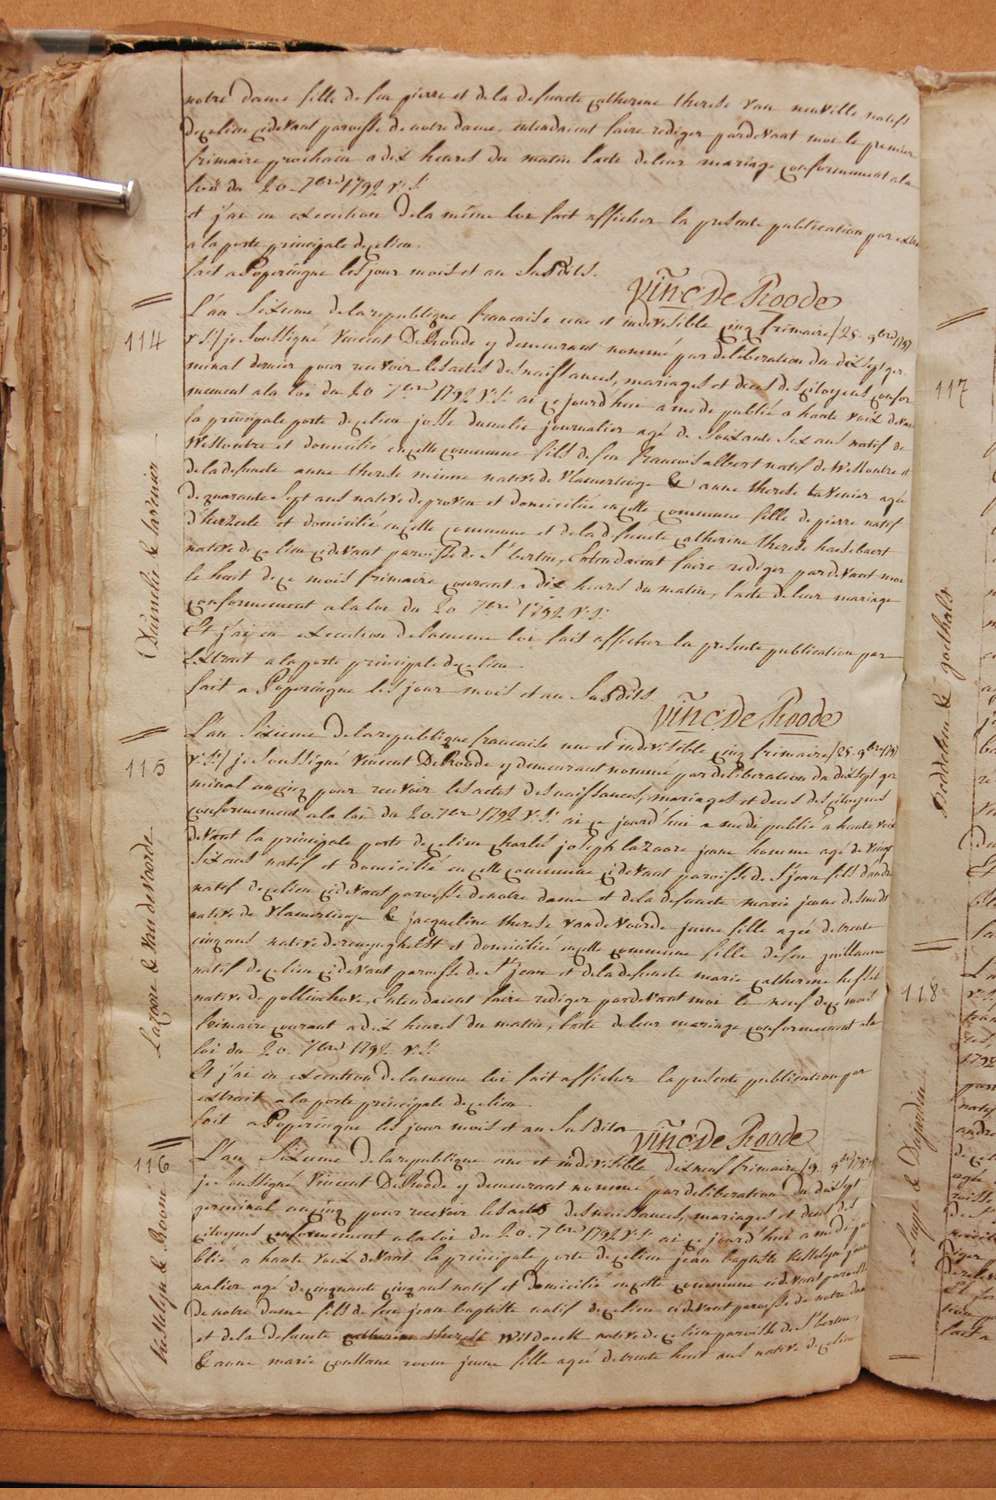 notre dame fille de feu pierre et de la defuncte catherine therese van neuville natifs
de ce lieu cidevant paroisse de notre dame. entendaient faire rediger pardevant moi le premier
frimaire prochain a dix heures du matin l'acte de leur mariage conformement a la
loi du 20 7bre 1792 v:s:
et j'ai en execution de la même loi fait afficher la presente publication par extrait
a la porte principale de ce lieu.
fait a Poperingue les jour mois et an susdits.
vinc: De Roode
114
L'an sixieme de la republique francaise une et indivisible cinq frimaire /25 9bre 1797
v:s:/ je soussigné vincent De Roode y demeurant nommé par deliberation du dix sept ger
minal dernier pour recevoir les actes des naissances, mariages et deces des citoyens confor
mement a la loi du 20 7bre 1792 v:s: ai ce jourd'hui a midi publié a haute voix devant
la principale porte de ce lieu josse dumelie journalier agé de soixante six ans natif de
Westoutre et domicilié en cette commune fils de feu francois albert natif de Westoutre et
de la defuncte anne therese natve de vlamertinge & anne therese lavenier agée
de quarante sept ans native de proven et domiciliée en cette commune fille de pierre natif
d'herzeele et domicilié en cette commune et de la defuncte catherine therese hasebaert
native de ce lieu cidevant paroisse de St bertin, entendaient faire rediger pardevant moi
le huit de ce mois frimaire courant a dix heures du matin, l'acte de leur mariage
conformement a la loi du 20 7bre 1792 v:s:
Et j'ai en execution de la meme loi fait afficher la presente publication par
extrait a la porte principale de ce lieu
fait a Poperingue les jour mois et an susdits
vinc: De Roode
Dumelie & lavenier
115
L'an sixieme de la republique francaise une et indivisible cinq frimaire /25 9bre 1797
v:s:/ je soussigné vincent De Roode y demeurant nommé par deliberation du dix sept ger
minal an cinq pour recevoir les actes des naissances, mariages et deces des citoyens
conformement a la loi du 20 7bre 1792 v:s: ai ce jourd'hui a midi publié a haute voix
devant la principale porte de ce lieu charles joseph lazoore jeune homme agé de vingt
six ans natif et domicilié en cette commune cidevant paroisse de St jean fils d'andre
natif de ce lieu cidevant paroisse de notre dame et de la defuncte marie jeanne desmedt
native de vlamertinge & jacqueline therese van de voorde jeune fille agée de trente
cinq ans native de reninghelst et domiciliée en cette commune fille de feu guillaume
natif de ce lieu cidevant paroisse de St jean et de la defuncte marie catherine
native de pollinchove, entendaient faire rediger pardevant moi le neuf de ce mois
frimaire courant a dix heures du matin, l'acte de leur mariage conformement a la
loi du 20 7bre 1792 v:s:
Et j'ai en execution de la meme loi fait afficher la presente publication par
extrait a la porte principale de ce lieu
fait a Poperingue les jour mois et an susdits
vinc: De Roode
Lazoore & van de voorde
116
L'an sixieme de la republique une et indivisible dixneuf frimaire
je soussigné vincent De Roode y demeurant nommé par deliberation du dix sept
germinal an cinq pour recevoir les actes des naissances, mariages et deces des
citoyens conformement a la loi du 20 7bre 1792 v:s: ai ce jourd'hui a midi pu
blié a haute voix devant la principale porte de ce lieu jean baptiste Kestelyn jour
nalier agé de cinquante cinq ans natif et domicilié en cette commune cidevant paroisse
de notre dame fils de feu jean baptiste natif de ce lieu cidevant paroisse de notre dame
et de la defuncte catherine therese Wildaeck native de ce lieu paroisse de St bertin,
& anne marie constance roone jeune fille agée de trente huit ans native de ce lieu
Kestelyn & Roone
117
Boddelin & goethals
118
Luyp & Dujardin